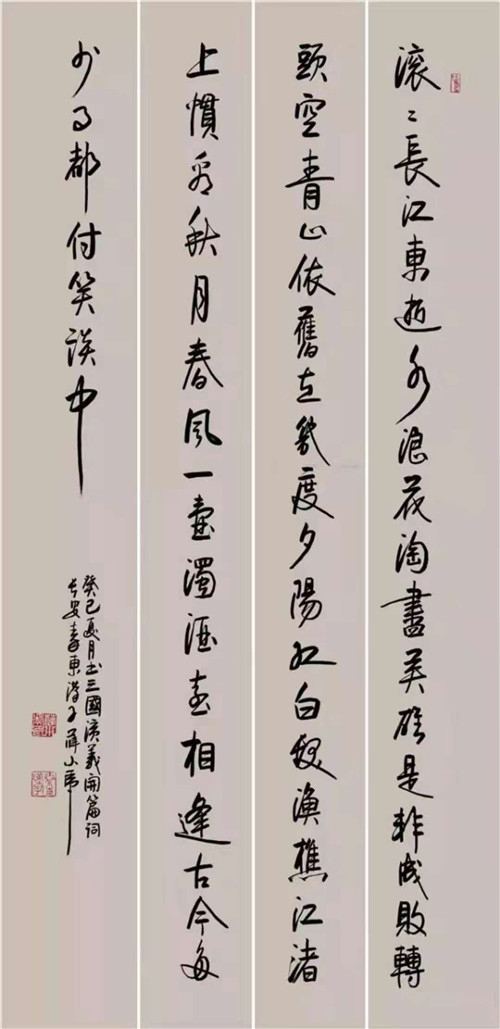 滚〻長江東逝水浪花淘盡英雄是非成敗轉
頭空青山依舊在幾度夕陽紅白髮漁樵江渚
上慣看秋月春風一壺濁酒喜相逢古今多
少事都付笑談中
癸巳夏月书三國演義開篇詞
长安